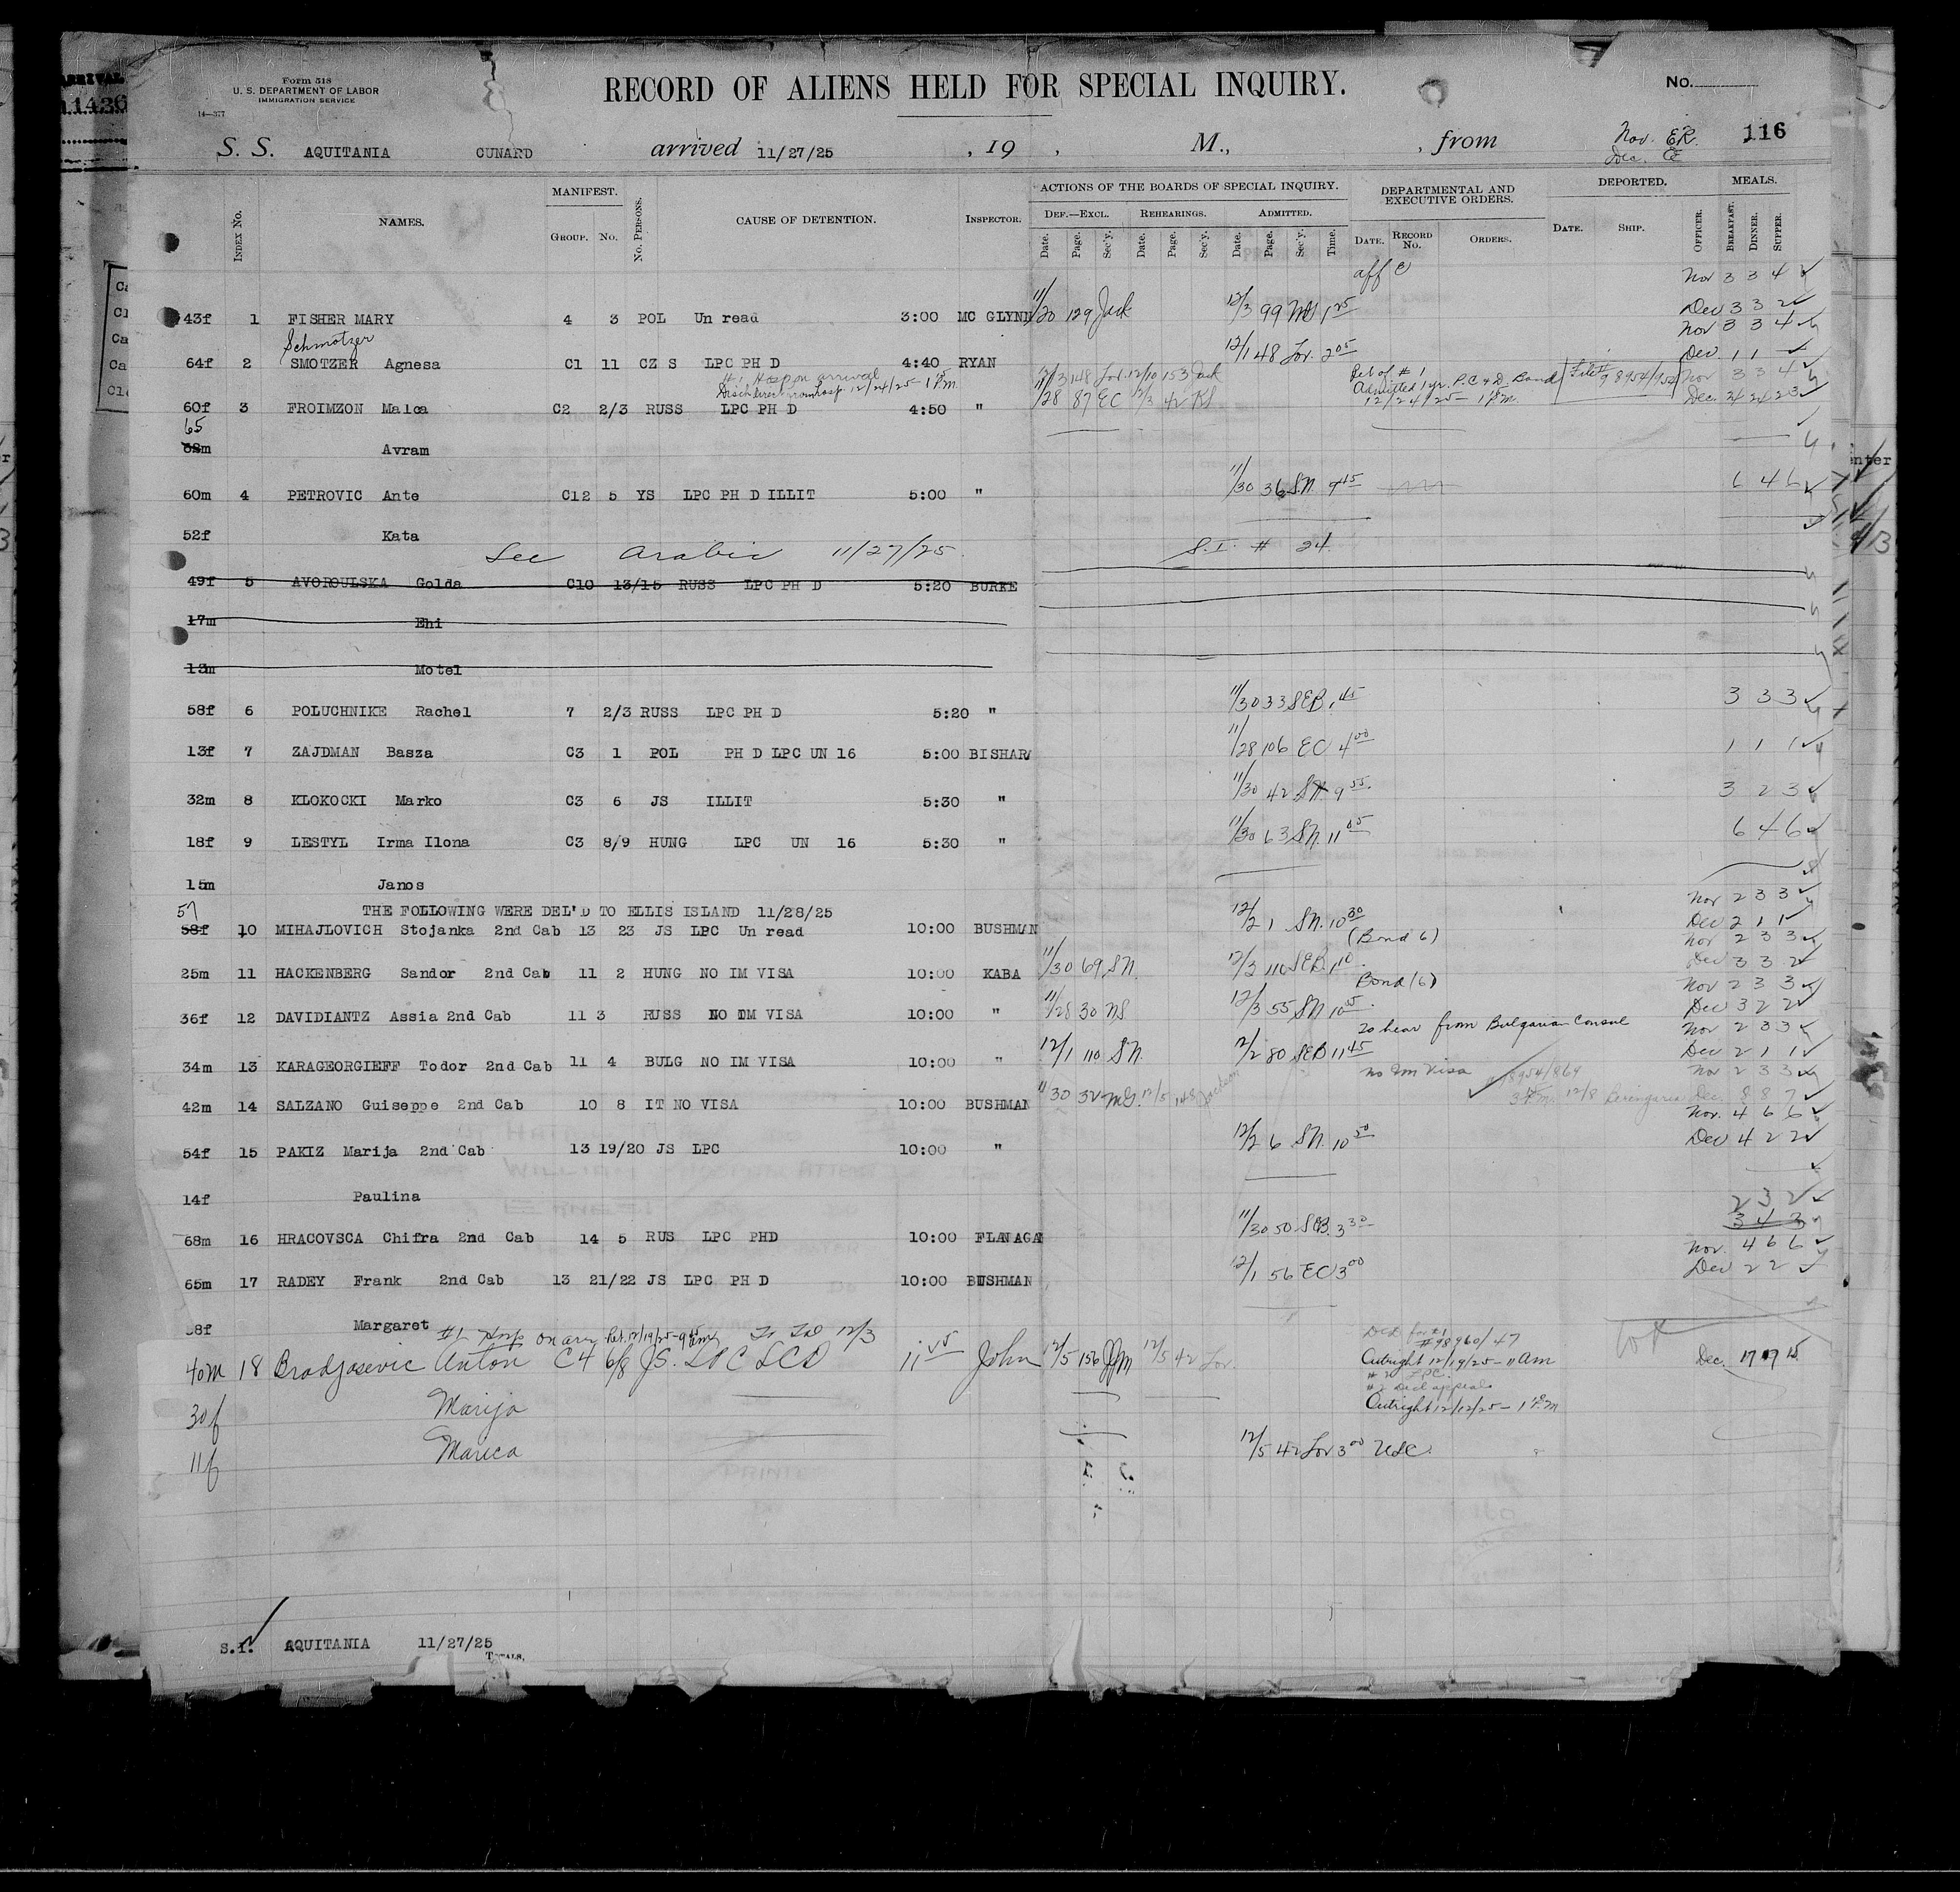 Form 518
U. S. DEPARTMENT OF LABOR
IMMIGRATION SERVICE
14—377
RECORD OF ALIENS HELD FOR SPECIAL INQUIRY.
No.
S. S. AQUITANIA CUNARD arrived 11/27/25 , 19 , M., , from
Nov. ER. 116
Dec. E
INDEX No. NAMES. MANIFEST. GROUP. No. No. PERSONS. CAUSE OF DETENTION. INSPECTOR. ACTIONS OF THE BOARDS OF SPECIAL INQUIRY. DEPARTMENTAL AND EXECUTIVE ORDERS. DEPORTED. MEALS.
DEF.—EXCL. REHEARINGS. ADMITTED.
Date. Page. Sec'y. Date. Page. Sec'y. Date. Page. Sec'y. Time. DATE. RECORD No. ORDERS. DATE. SHIP. OFFICER. BREAKFAST. DINNER. SUPPER.
aff C Nov 3 3 4
43f 1 FISHER MARY 4 3 POL Un read 3:00 MC GLYNN 129 Jack 12/3 99 1 25 Dec 3 3 2
Schmotzer Nov 3 3 4
64f 2 SMOTZER Agnesa C1 11 CZ S LPC PH D 4:40 RYAN 12/1 48 Lov. 2 05 Dec. 1 1
#1 Hosp on arrival 148 Lov. 12/10 153 Jack Rel of #1 Nov 3 3 4
Discharged from hosp 12/24/25 - 1 P.m. Admitted 1 yr. P.C & D. Bond File# 98954/952
60f 3 FROIMZON Malca C2 2/3 RUSS LPC PH D 4:50 " 11/28 87 EC 12/3 42 12/24/25 - 1 P.m. Dec.
65
Avram
60m 4 PETROVIC Ante C12 5 YS LPC PH D ILLIT 5:00 " 11/30 36 S.N. 9 45 6 4 6
52f Kata
See Arabic 11/27/25. S.I. # 24.
49f 5 AVOROULSKA Golda C10 13/15 RUSS LPC PH D 5:20 BURKE
17m Ehi
13m Motel
58f 6 POLUCHNIKE Rachel 7 2/3 RUSS LPC PH D 5:20 " 11/30 33 SEB 1 45 3 3 3
13f 7 ZAJDMAN Basza C3 1 POL PH D LPC UN 16 5:00 BISHARA 11/28 106 EC 4 00 1 1 1
32m 8 KLOKOCKI Marko C3 6 JS ILLIT 5:30 " 11/30 42 S.N. 9 55 3 2 3
18f 9 LESTYL Irma Ilona C3 8/9 HUNG LPC UN 16 5:30 " 11/30 63 S.N. 11 05 6 4 6
15m Janos
THE FOLLOWING WERE DEL'D TO ELLIS ISLAND 11/28/25 Nov 2 3 3
57
58f 10 MIHAJLOVICH Stojanka 2nd Cab 13 23 JS LPC Un read 10:00 BUSHMAN 12/2 1 S.N. 10 30 Dec 2 1 1
(Bond 6) Nov 2 3 3
25m 11 HACKENBERG Sandor 2nd Cab 11 2 HUNG NO IM VISA 10:00 KABA 11/30 69 S.N. 12/3 110 SEB. 1 10 Dec 3 3 2
Bond (6) Nov 2 3 3
36f 12 DAVIDIANTZ Assia 2nd Cab 11 3 RUSS NO IM VISA 10:00 " 11/28 30 NS 12/3 55 S.N. 10 55 Dec 3 2 2
To hear from Bulgarian Consul Nov 2 3 3
34m 13 KARAGEORGIEFF Todor 2nd Cab 11 4 BULG NO IM VISA 10:00 " 12/1 110 S.N. 12/2 80 SEB 11 45 Dec 2 1 1
no Im Visa 98954/864 Nov 2 3 3
42m 14 SALZANO Guiseppe 2nd Cab 10 8 IT NO VISA 10:00 BUSHMAN 11/30 32 MG. 12/5 148 Jackson 12/8 Berengaria Dec. 8 8 7
Nov. 4 6 6
54f 15 PAKIZ Marija 2nd Cab 13 19/20 JS LPC 10:00 " 12/2 6 S.N. 10 50 Dec 4 2 2
14f Paulina
2 3 2
68m 16 HRACOVSCA Chifra 2nd Cab 14 5 RUS LPC PHD 10:00 FLANAGA 11/30 50 SEB. 3 30 3 4 3
Nov. 4 6 6
65m 17 RADEY Frank 2nd Cab 13 21/22 JS LPC PH D 10:00 BUSHMAN 12/1 56 EC 3 00 Dec 2 2
58f Margaret
#1 Hosp on arr. 12/19/25 - 12/3 #98960/47
40m 18 Bradjasevic Anton C4 6/8 JS. LPC LCD 11 55 John 12/5 156 12/5 42 Lov. Outright 12/19/25 - 11 am Dec. 17 17 15
# 2 Decl appeals
30f Marija Outright 12/12/25 - 1 P.M
11f Marica 12/5 42 Lov 3 00 USC.
S.I. AQUITANIA 11/27/25
TOTALS.